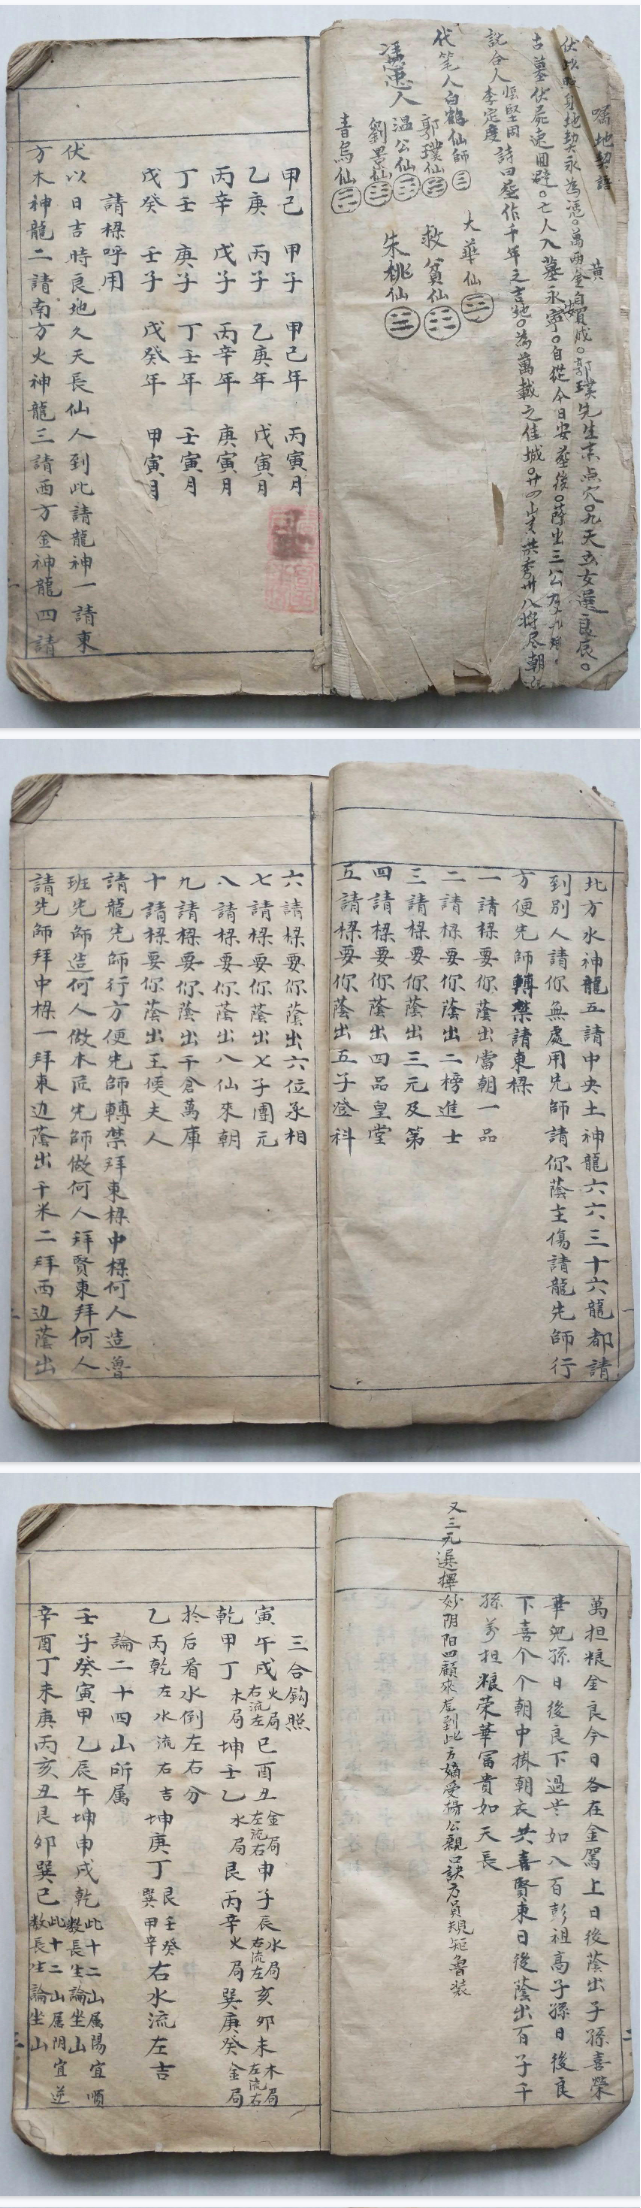 嘱地契語
伏以 地契永為憑。萬両黄金自買成。郭璞先生来点穴。九天玄女選良辰。
古墓伏屍速回避。亡人入墓永寧。自從今日安葬後。蔭出三公
説合人 李定度 張堅固 詩曰葬作千年之吉地。為萬載之佳城。廿四山共秀廿八將尽朝
代筆人白鶴仙師 大華仙
郭璞仙 救貧仙
憑忠人 温公仙 朱桃仙
劉景仙
青烏仙
甲己 甲子 甲己年 丙寅月
乙庚 丙子 乙庚年 戊寅月
丙辛 戊子 丙辛年 庚寅月
丁壬 庚子 丁壬年 壬寅月
戊癸 壬子 戊癸年 甲寅月
請樑呼用
伏以日吉時良地久天長仙人到此請龍神一請東
方木神龍二請南方火神龍三請西方金神龍四請
北方水神龍五請中央土神龍六六三十六龍都請
到別人請你無處用先師請你蔭主傷請龍先師行
方便先師轉禁請東樑
一請樑要你蔭出當朝一品
二請樑要你蔭出二榜進士
三請樑要你蔭出三元及第
四請樑要你蔭出四品皇堂
五請樑要你蔭出五子登科
六請樑要你蔭出六位承相
七請樑要你蔭出七子團元
八請樑要你蔭出八仙來朝
九請樑要你蔭出千倉萬庫
十請樑要你蔭出王侯夫人
請龍先師行方便先師轉禁拜東樑中樑何人造魯
班先師造何人做木匠先師做何人拜賢東拜何人
請先師拜中樑一拜東边蔭出千米二拜西边蔭出
萬担粮金良今日各在金駡上日後蔭出子孫喜榮
華兒孫日後良下過世如八百彭祖高子孫日後良
下喜个个朝中掛朝衣共喜賢東日後蔭出百子千
孫万担粮荣華富貴如天長
又三元選擇妙阴阳四顧來届到此方嫡受楊公親口訣方員規矩魯装
三合鈎照
寅午戌火局右流左巳酉丑金局左流右申子辰水局右流左亥卯未木局左流右
乾甲丁木局坤壬乙水局艮丙辛火局巽庚癸金局
於后看水倒左右分
乙丙乾左水流右吉坤庚丁艮壬癸巽甲辛右水流左吉
論二十四山所属
壬子癸寅甲乙辰午坤申戌乾此十二山属陽宜順数長生論坐山
辛酉丁未庚丙亥丑艮卯巽巳此十二山属阴宜逆数長生論坐山